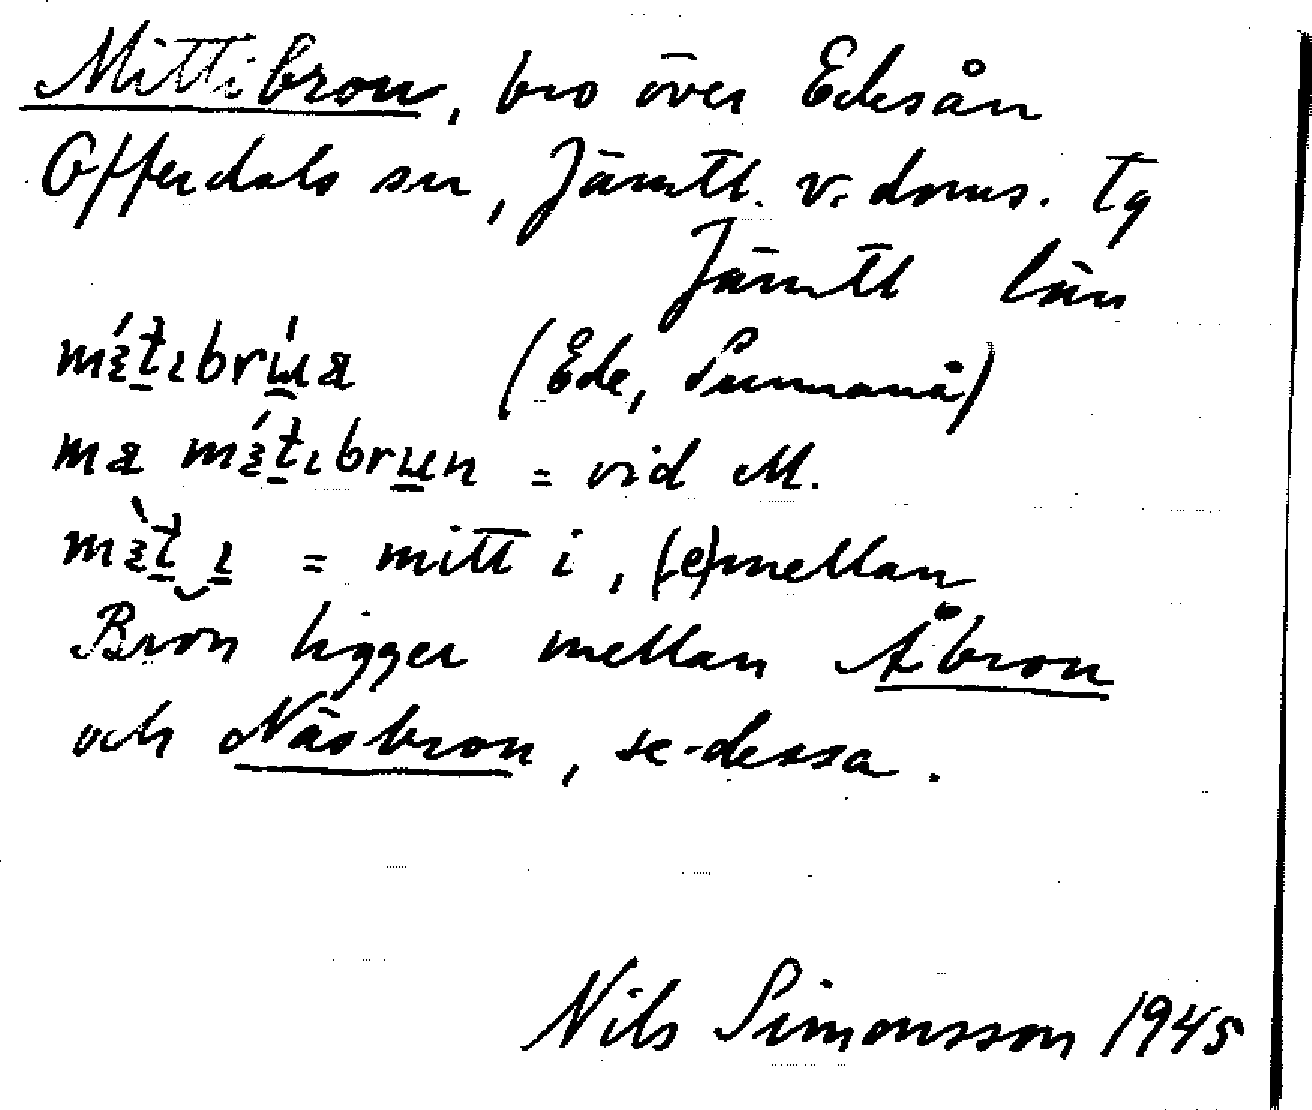 Mittibron, bro över Edesån
Offerdals sn, Jämtl. v. doms. tg
Jämtl län
(Ede, Sunnanå)
= vid M.
= mitt i, (e)mellan
Bron ligger mellan Åbron
och Näsbron, se dessa.
Nils Simonsson 1945